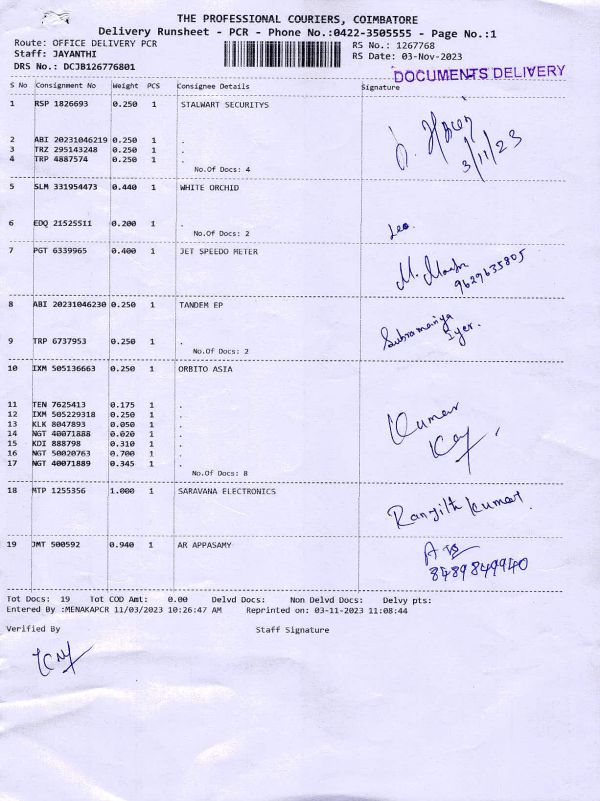 THE PROFESSIONAL COURIERS, COIMBATORE
Delivery Runsheet - PCR - Phone No.:0422-3505555 - Page No.:1
Route: OFFICE DELIVERY PCR RS No.: 1267768
Staff: JAYANTHI RS Date: 03-Nov-2023
DRS No.: DCJB126776801
DOCUMENTS DELIVERY
S No Consignment No Weight PCS Consignee Details Signature
1 RSP 1826693 0.250 1 STALWART SECURITYS
2 ABI 20231046219 0.250 1 .
3 TRZ 295143248 0.250 1 .
4 TRP 4887574 0.250 1 .
3/11/23
No.Of Docs: 4
5 SLM 331954473 0.440 1 WHITE ORCHID
6 EDQ 21525511 0.200 1 .
Leo.
No.Of Docs: 2
7 PGT 6339965 0.400 1 JET SPEEDO METER
9629635805
8 ABI 20231046230 0.250 1 TANDEM EP
Subramaniya
Iyer.
9 TRP 6737953 0.250 1 .
No.Of Docs: 2
10 IXM 505136663 0.250 1 ORBITO ASIA
11 TEN 7625413 0.175 1 .
12 IXM 505229318 0.250 1 .
13 KLK 8047893 0.050 1 .
14 NGT 40071888 0.020 1 .
15 KDI 888798 0.310 1 .
16 NGT 50020763 0.700 1 .
17 NGT 40071889 0.345 1 .
Kumar
No.Of Docs: 8
18 MTP 1255356 1.000 1 SARAVANA ELECTRONICS
Ranjith Kumar.
19 JMT 500592 0.940 1 AR APPASAMY
8489849940
Tot Docs: 19 Tot COD Amt: 0.00 Delvd Docs: Non Delvd Docs: Delvy pts:
Entered By :MENAKAPCR 11/03/2023 10:26:47 AM Reprinted on: 03-11-2023 11:08:44
Verified By Staff Signature